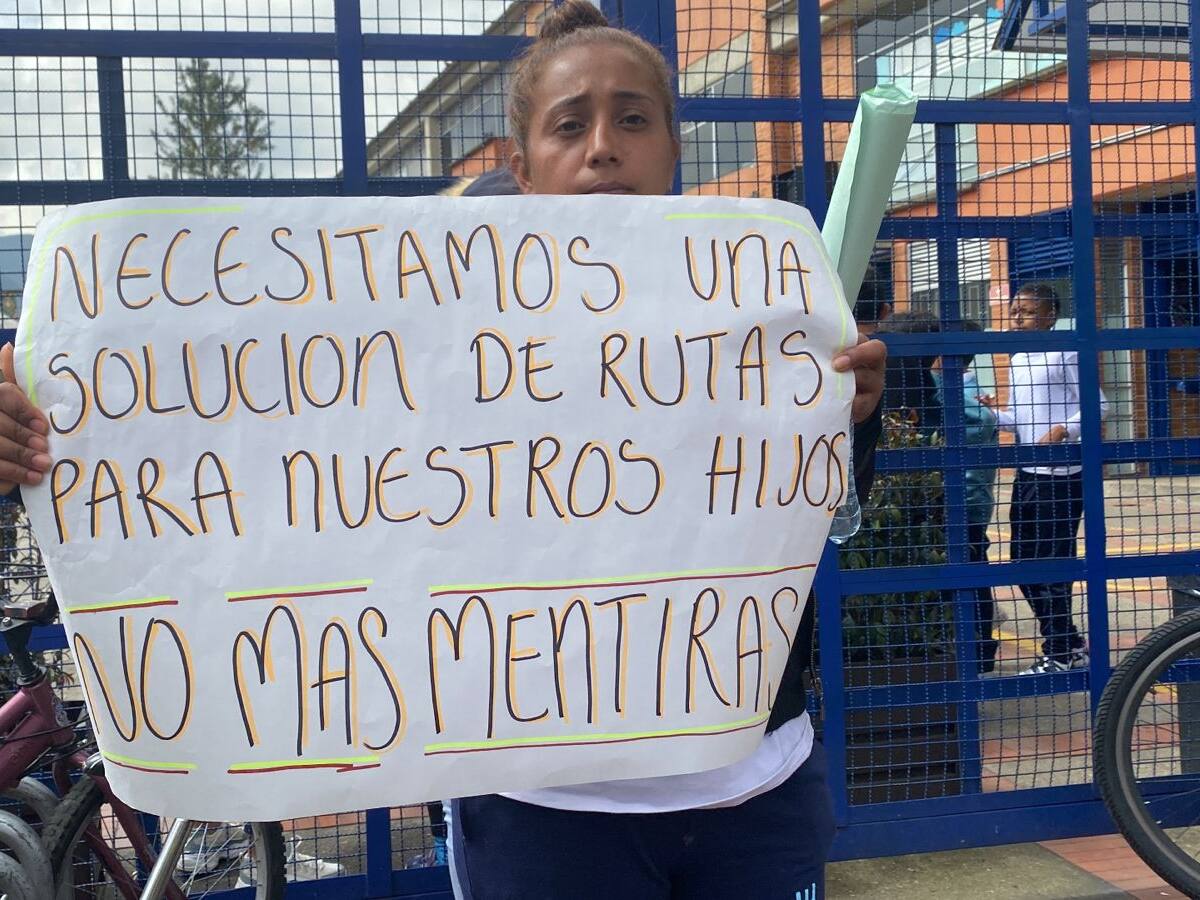 NECESITAMOS UNA
SOLUCION DE RUTAS
PARA NUESTROS HIJOS
NO MAS MENTIRAS.